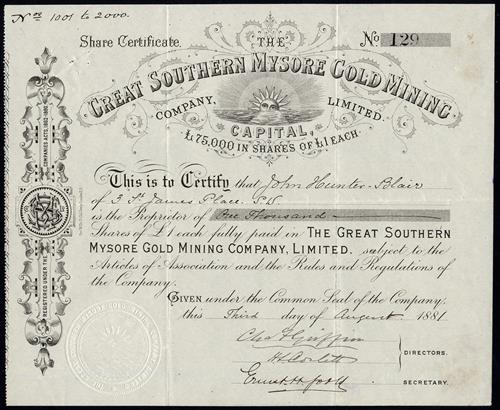 Nos 1001 to 2000.
Share Certificate.
THE
No. 129
GREAT SOUTHERN MYSORE GOLD MINING
COMPANY, LIMITED.
CAPITAL,
£75,000 IN SHARES OF £1 EACH.
This is to Certify that John Hunter-Blair
of 3 St James Place. SW
is the Proprietor of One Thousand
Shares of £1 each fully paid in THE GREAT SOUTHERN
MYSORE GOLD MINING COMPANY, LIMITED. subject to the
Articles of Association and the Rules and Regulations of
the Company.
GIVEN under the Common Seal of the Company,
this Third day of August 1881
DIRECTORS.
SECRETARY.
REGISTERED UNDER THE
COMPANIES ACTS, 1862-1880